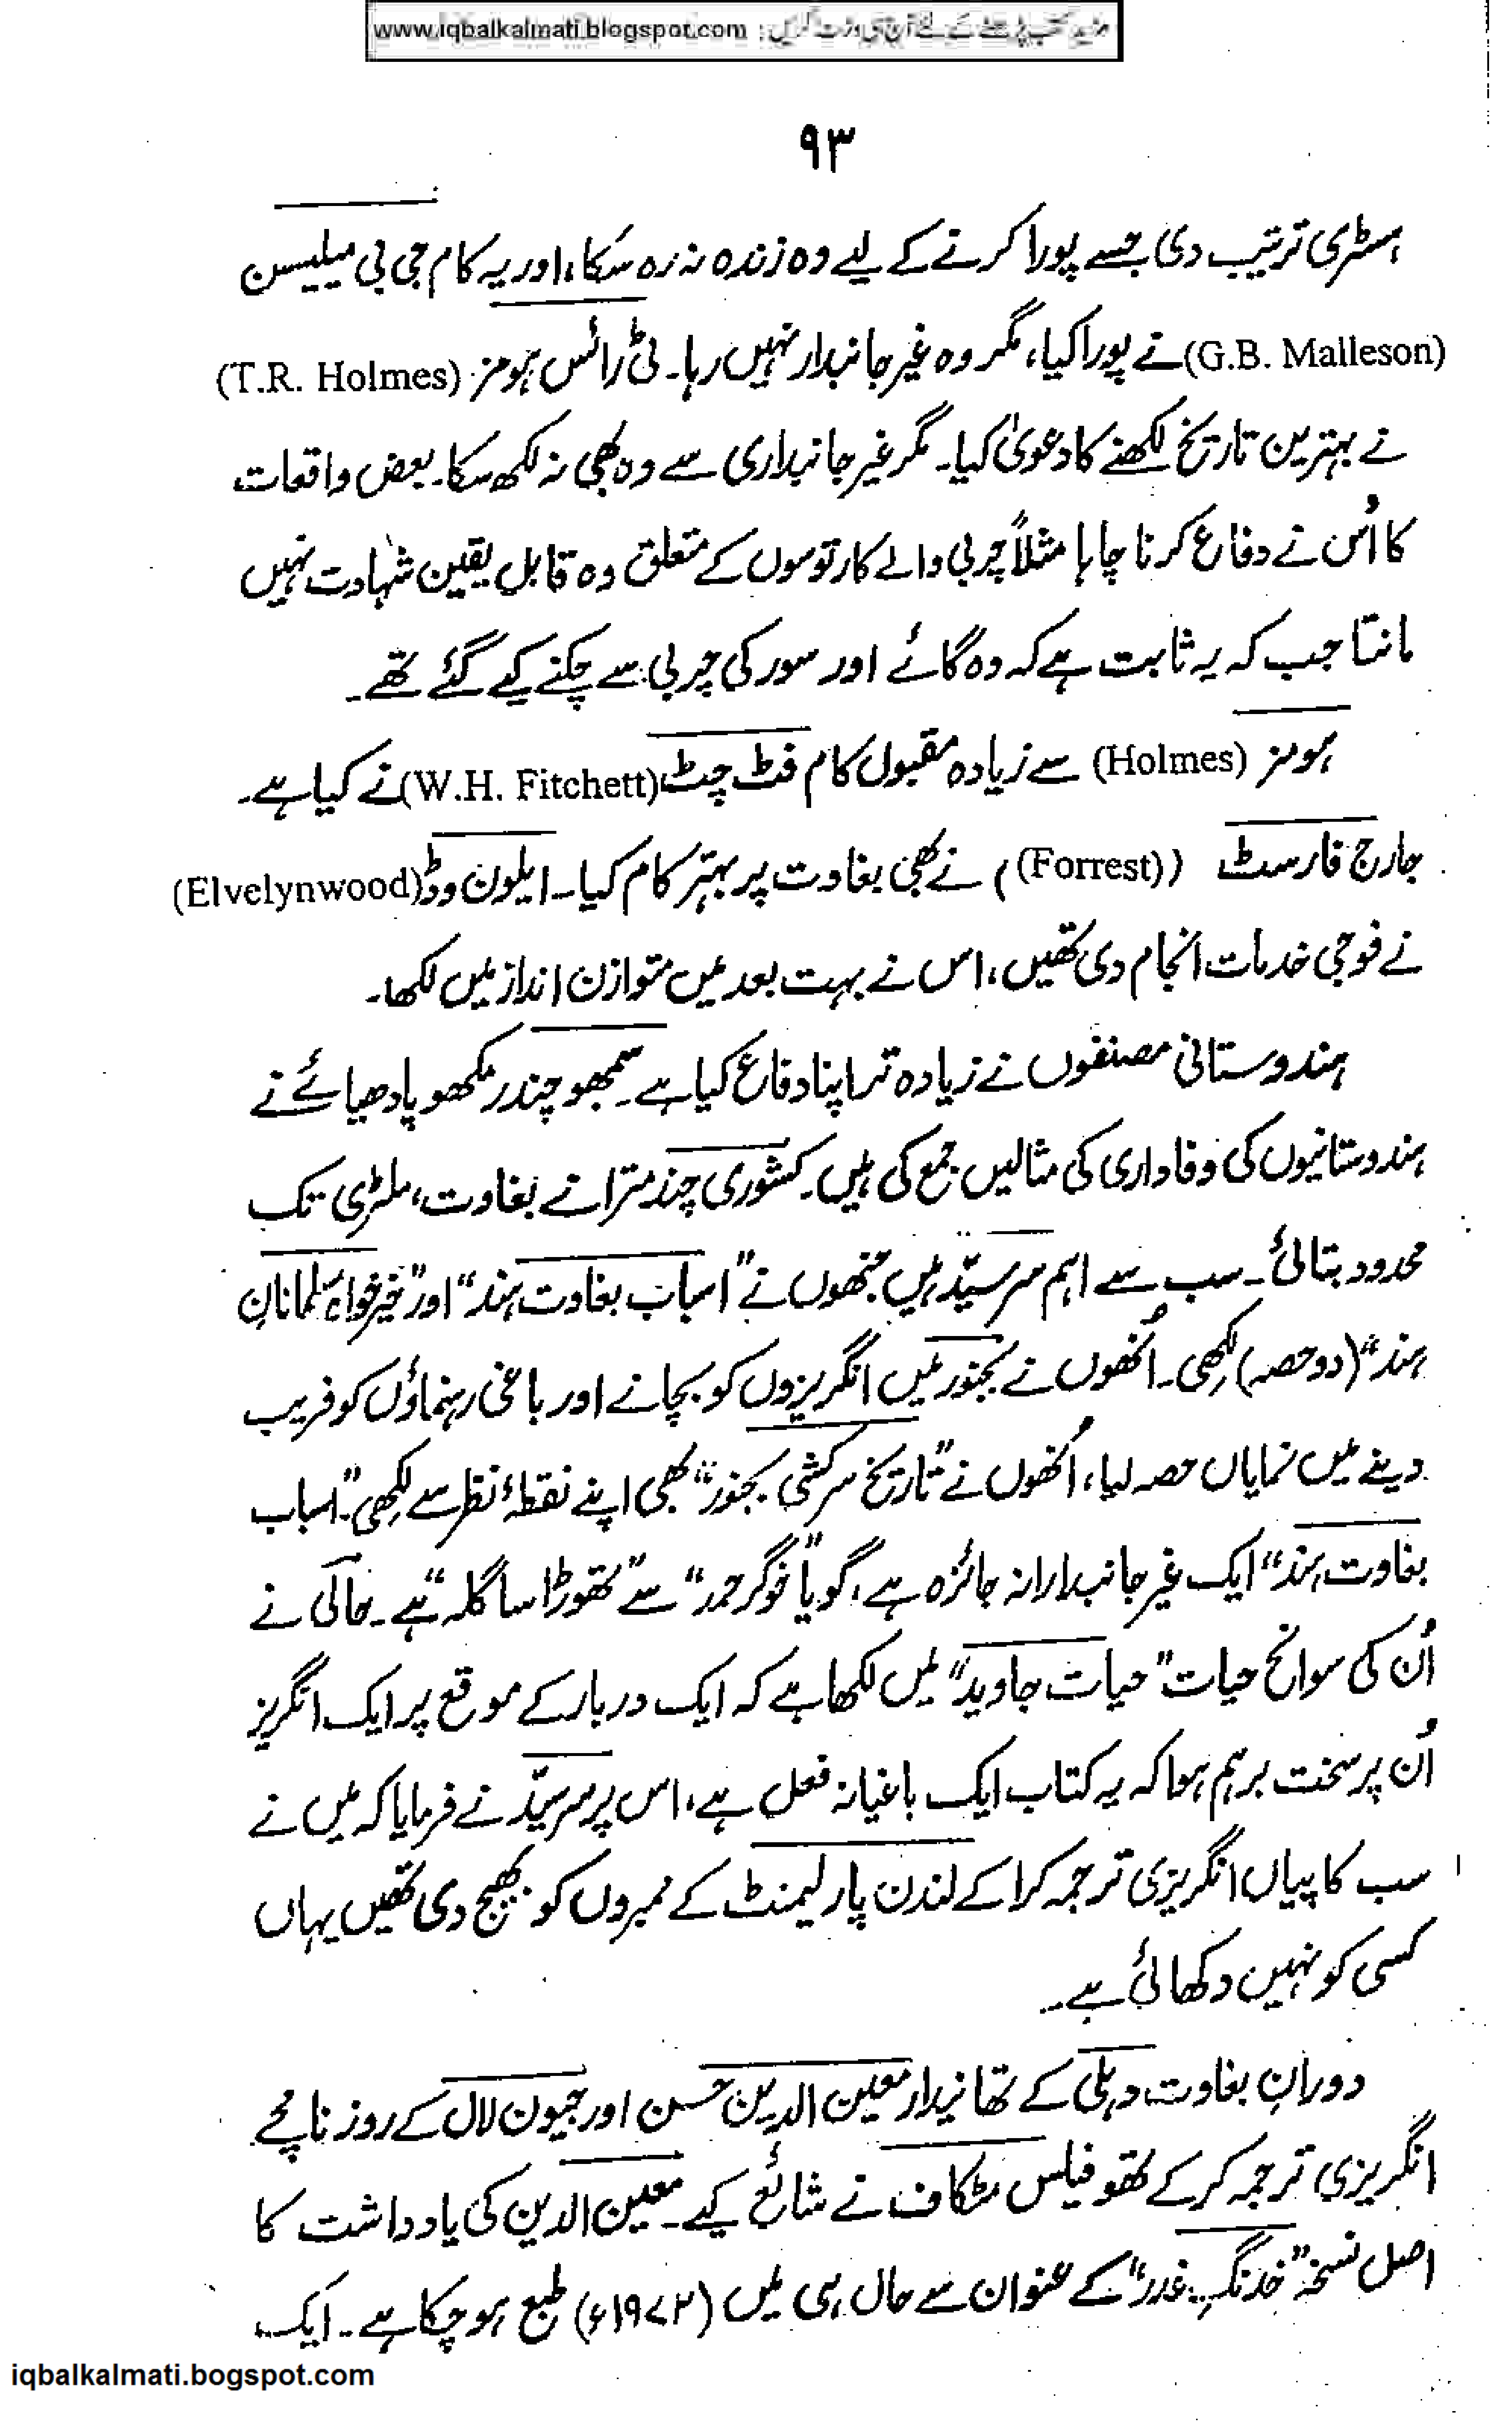 مزید کتب پڑھنے کے لئے آج ہی وزٹ کریں : www.iqbalkalmati.blogspot.com
۹۳
ہسٹری ترتیب دی جسے پورا کرنے کے لیے وہ زندہ نہ رہ سکا، اور یہ کام جی بی میلیسن
(G.B. Malleson) نے پورا کیا، مگر وہ غیر جانبدار نہیں رہا۔ ٹی رائس ہومز (T.R. Holmes)
نے بہترین تاریخ لکھنے کا دعویٰ کیا۔ مگر غیر جانبداری سے وہ بھی نہ لکھ سکا۔ بعض واقعات
کا اُس نے دفاع کرنا چاہا مثلاً چربی والے کارتوسوں کے متعلق وہ قابل یقین شہادت نہیں
مانتا جب کہ یہ ثابت ہے کہ وہ گائے اور سور کی چربی سے چکنے کیے گئے تھے۔
ہومز (Holmes) سے زیادہ مقبول کام فٹ چٹ (W.H. Fitchett) نے کیا ہے۔
جارج فارسٹ ( (Forrest) ) نے بھی بغاوت پر بہتر کام کیا۔ ایلون وڈ (Elvelynwood)
نے فوجی خدمات انجام دی تھیں، اس نے بہت بعد میں متوازن انداز میں لکھا۔
ہندوستانی مصنفوں نے زیادہ تر اپنا دفاع کیا ہے۔ سمبھو چندر مکھوپادھیائے نے
ہندوستانیوں کی وفاداری کی مثالیں جمع کی ہیں۔ کشوری چند مترا نے بغاوت، ملٹری تک
محدود بتائی۔ سب سے اہم سرسیّد ہیں جنھوں نے ”اسباب بغاوت ہند“ اور ”خیرخواہ مسلمانانِ
ہند“ (دو حصہ) لکھی۔ اُنھوں نے بجنور میں انگریزوں کو بچانے اور باغی رہنماؤں کو فریب
دینے میں نمایاں حصہ لیا، اُنھوں نے ”تاریخ سرکشی بجنور“ بھی اپنے نقطۂ نظر سے لکھی۔ ”اسباب
بغاوت ہند“ ایک غیر جانبدارانہ جائزہ ہے، گویا ”خوگر حمد“ سے ”تھوڑا سا گلہ“ ہے۔ حالی نے
اُن کی سوانح حیات ”حیات جاوید“ میں لکھا ہے کہ ایک دربار کے موقع پر ایک انگریز
اُن پر سخت برہم ہوا کہ یہ کتاب ایک باغیانہ فعل ہے، اس پر سرسیّد نے فرمایا کہ میں نے
سب کاپیاں انگریزی ترجمہ کرا کے لندن پارلیمنٹ کے ممبروں کو بھیج دی تھیں یہاں
کسی کو نہیں دکھائی ہے۔
دورانِ بغاوت دہلی کے تھانیدار معین الدین حسن اور جیون لال کے روزنامچے
انگریزی ترجمہ کر کے تھوفیلس مٹکاف نے شائع کیے۔ معین الدین کی یادداشت کا
اصل نسخہ ”خدنگِ غدر“ کے عنوان سے حال ہی میں (۱۹۷۲ء) طبع ہو چکا ہے۔ ایک
iqbalkalmati.bogspot.com